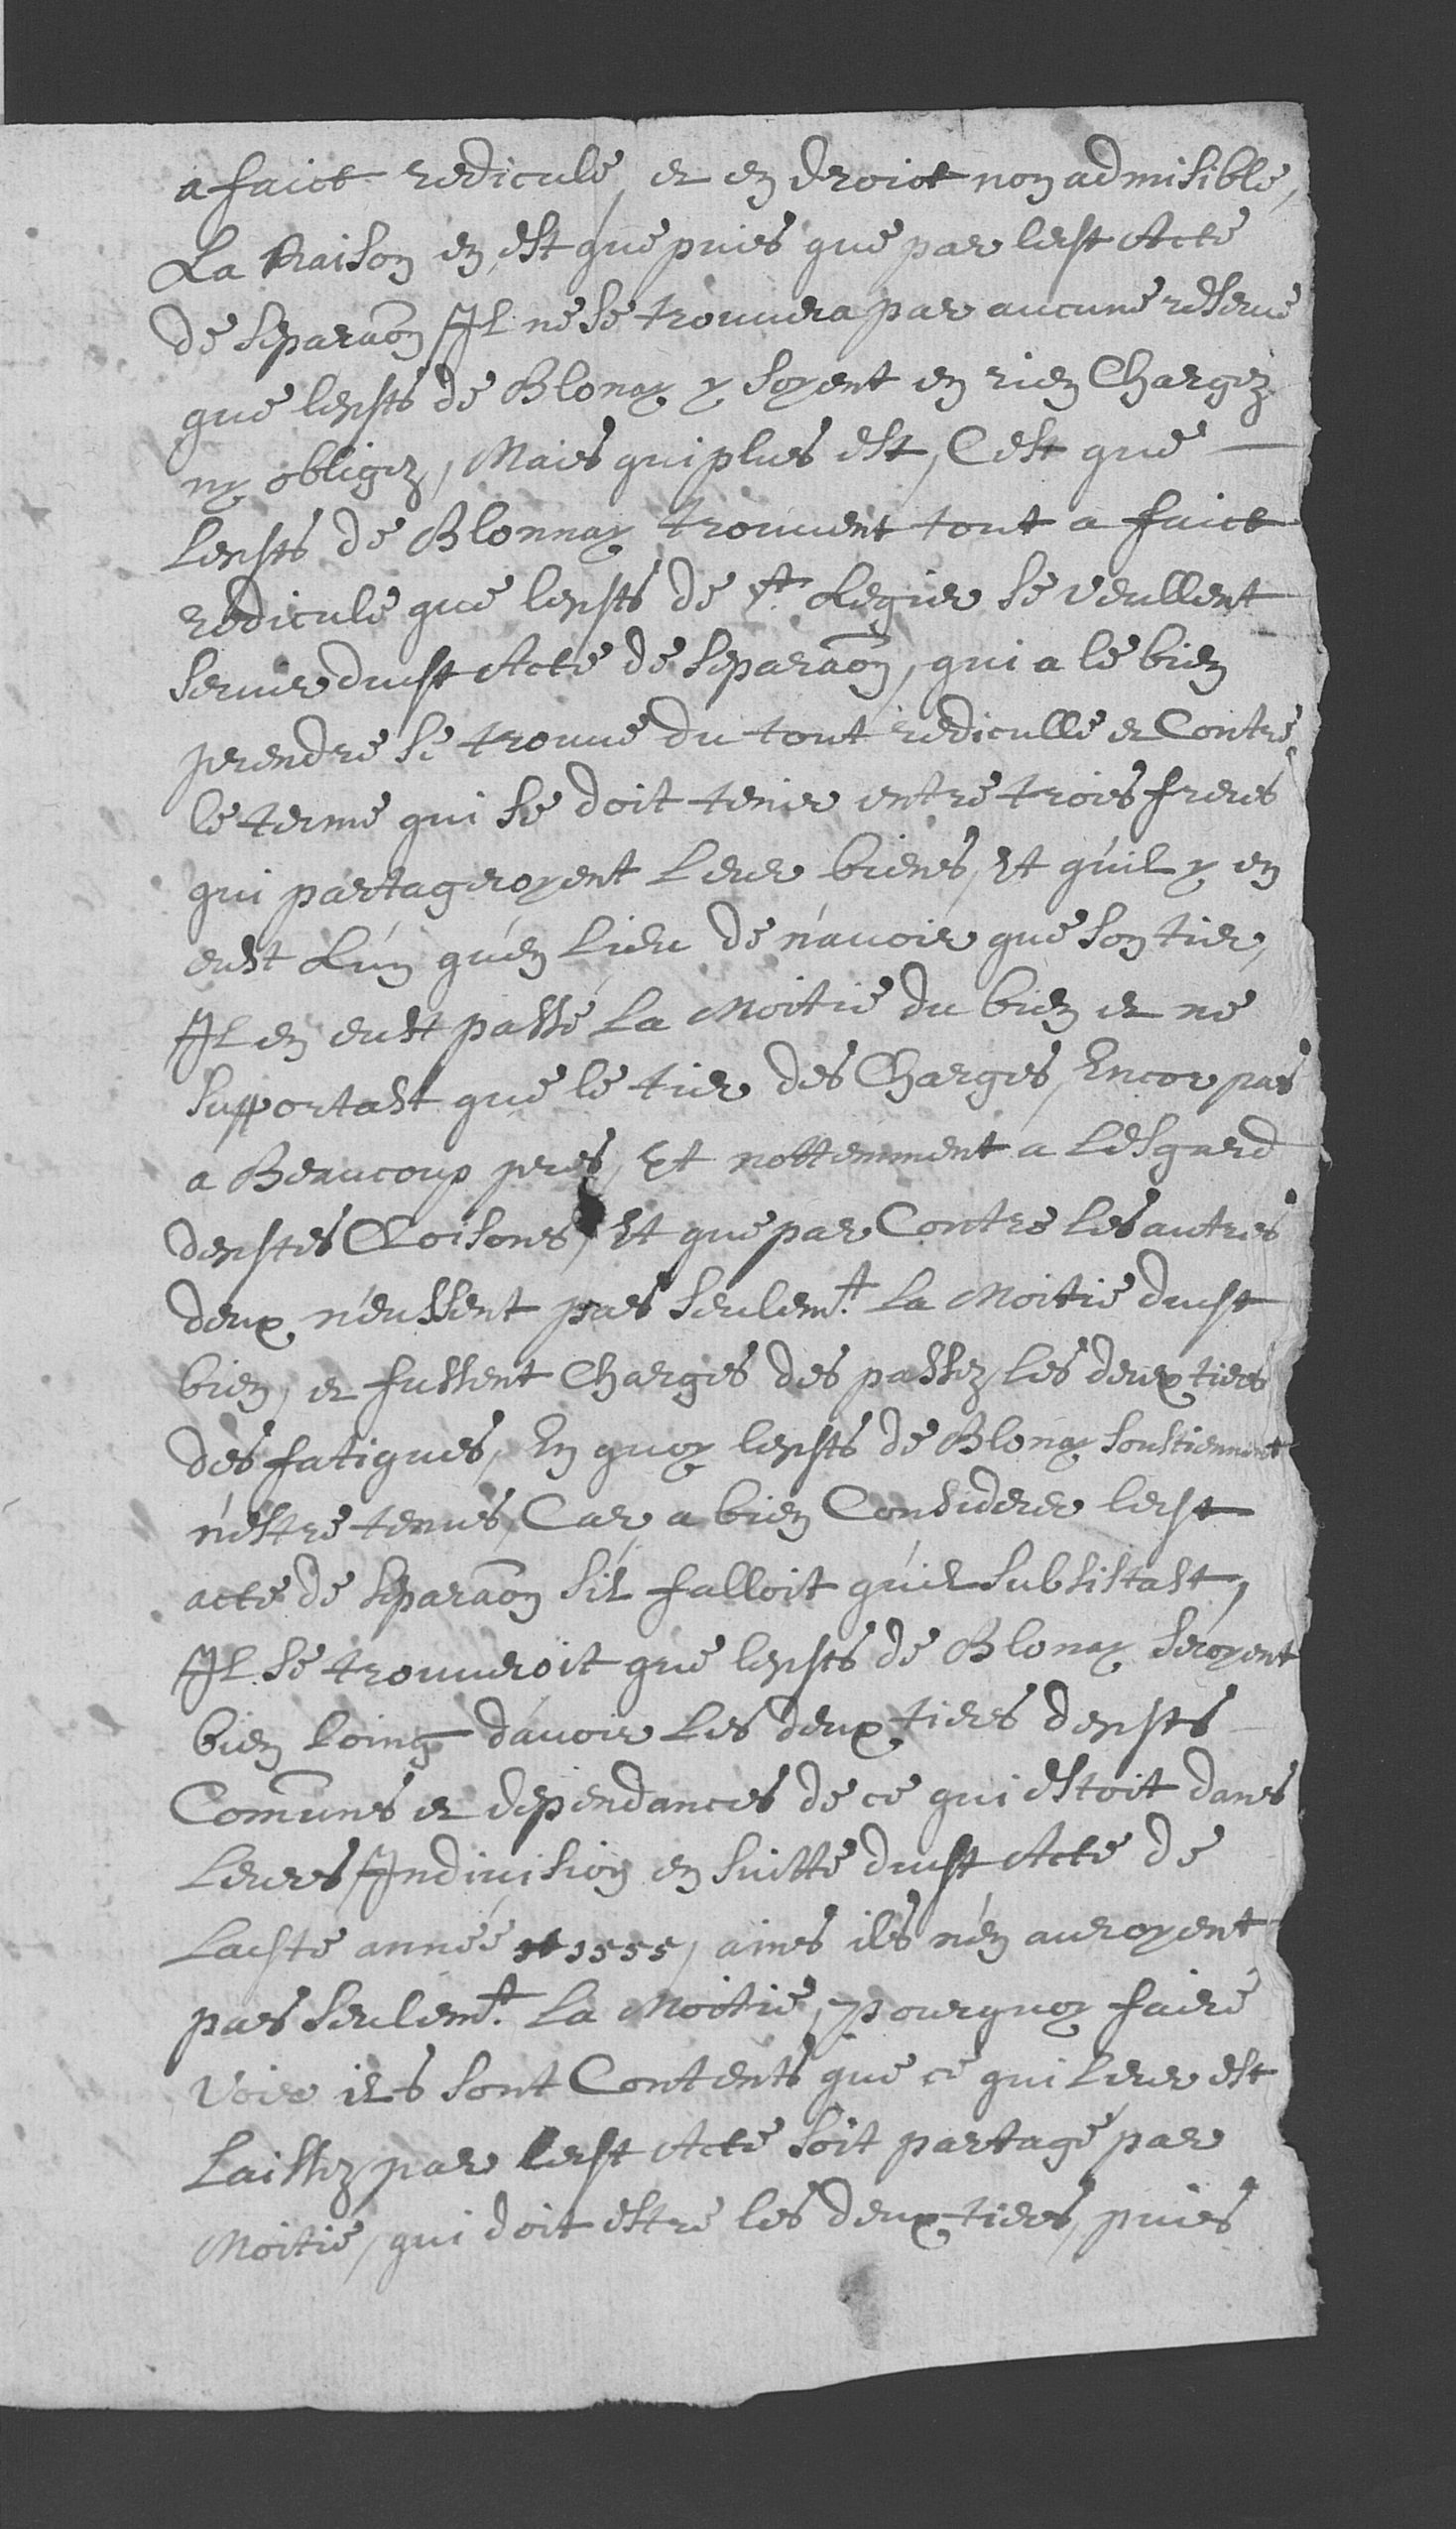 a faict redicule, et en droict non admisible,
La Raison en est que puis que par ledt Acte
de Separaõn Il ne se trouuera par aucune reserue
que lesdts de Blonay y soyent en rien Chargez
ny obligez, Mais qui plus est, C'est que
Lesdts de Blonnay trouuent tout a faict
redicule que lesdts de St Legier se veullent
seruir dudt Acte de Separaõn, qui a le bien
prendre se trouue du tout rediculle et Contre
le terme qui se doit tenir entre trois freres
qui partageroyent Leur biens, Et qu'il y en
eust L'un qu'en Lieu de n'auoir que son tier,
Il en eust passé La Moitie du bien et ne
supportast que le tier des Charges, Encor pas
a Beaucoup pres, Et nottemment a L'esgard
desdtes Cloisons, Et que par Contre les autres
deux n'eussent pas seulemt. La Moitie dudt
bien, et fussent Charges des passez les deux tiers
des fatigues, En quoy lesdts de Blonay soustiennent
n'estre tenus, Car, a bien Considerer ledt
acte de Separaõn s'il falloit qu'il subsistast,
Il se trouueroit que lesdts de Blonay seroyent
bien loing d'auoir Les deux tiers desdts
Com̃uns et dependances de ce qui estoit dans
Leurs Indiuision en suitte dudt Acte de
Ladte année 1555, ains ils n'en auroyent
pas seulemt. La Moitie, pourquoy faire
voir ils sont Contents que ce qui Leur est
Laissez par ledt Acte soit partagé par
Moitie, qui doit estre les deux tiers, puis